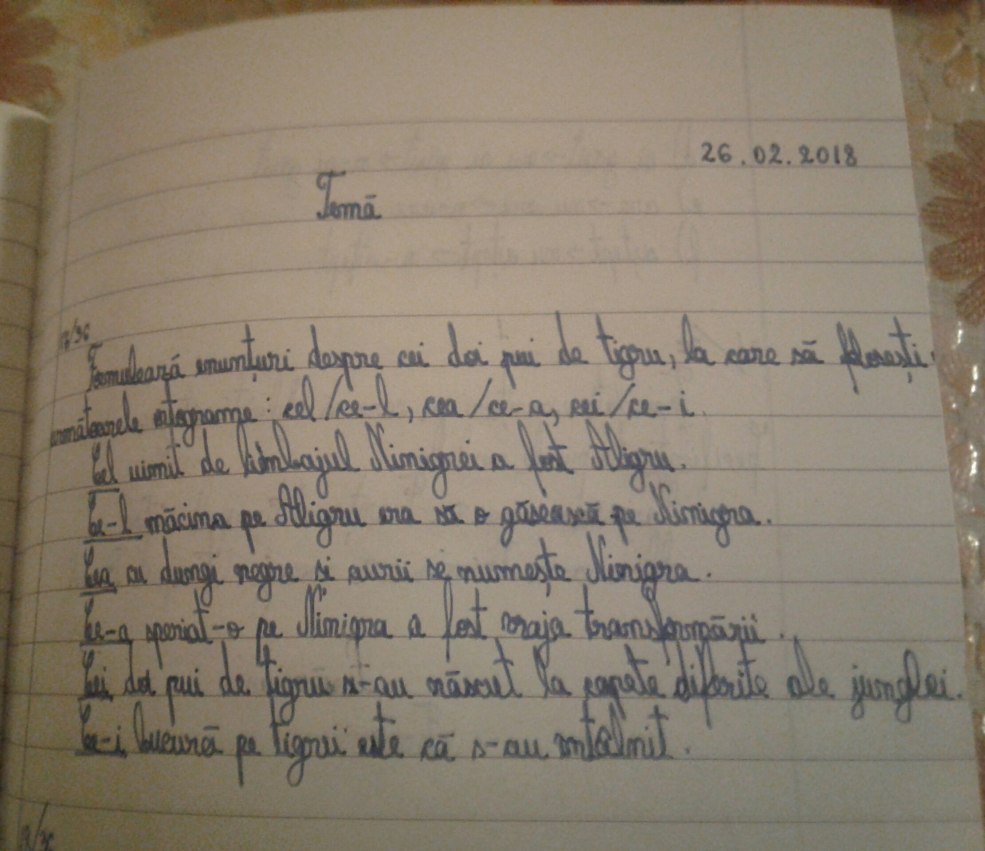 26.02.2018
Temă
17/36
Formulează enunțuri despre cei doi pui de tigru, în care să folosești
următoarele ortograme: cel/ce-l, cea/ce-a, cei/ce-i.
Cel uimit de limbajul Nimigrei a fost Aligru.
Ce-l măcina pe Aligru era să o găsească pe Nimigra.
Cea cu dungi negre si aurii se numește Nimigra.
Ce-a speriat-o pe Nimigra a fost vraja transformării.
Cei doi pui de tigru s-au născut la capete diferite ale junglei.
Ce-i bucură pe tigrii este că s-au întâlnit.